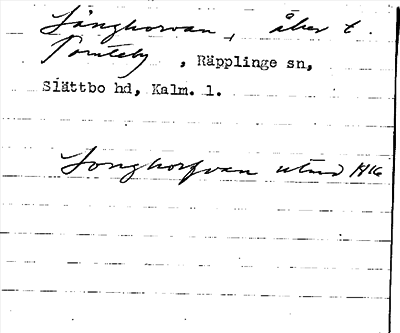 Långhorvan, åker t.
Tomteby, Räpplinge sn,
Slättbo hd, Kalm. l.
Longhorfvan utmd HK